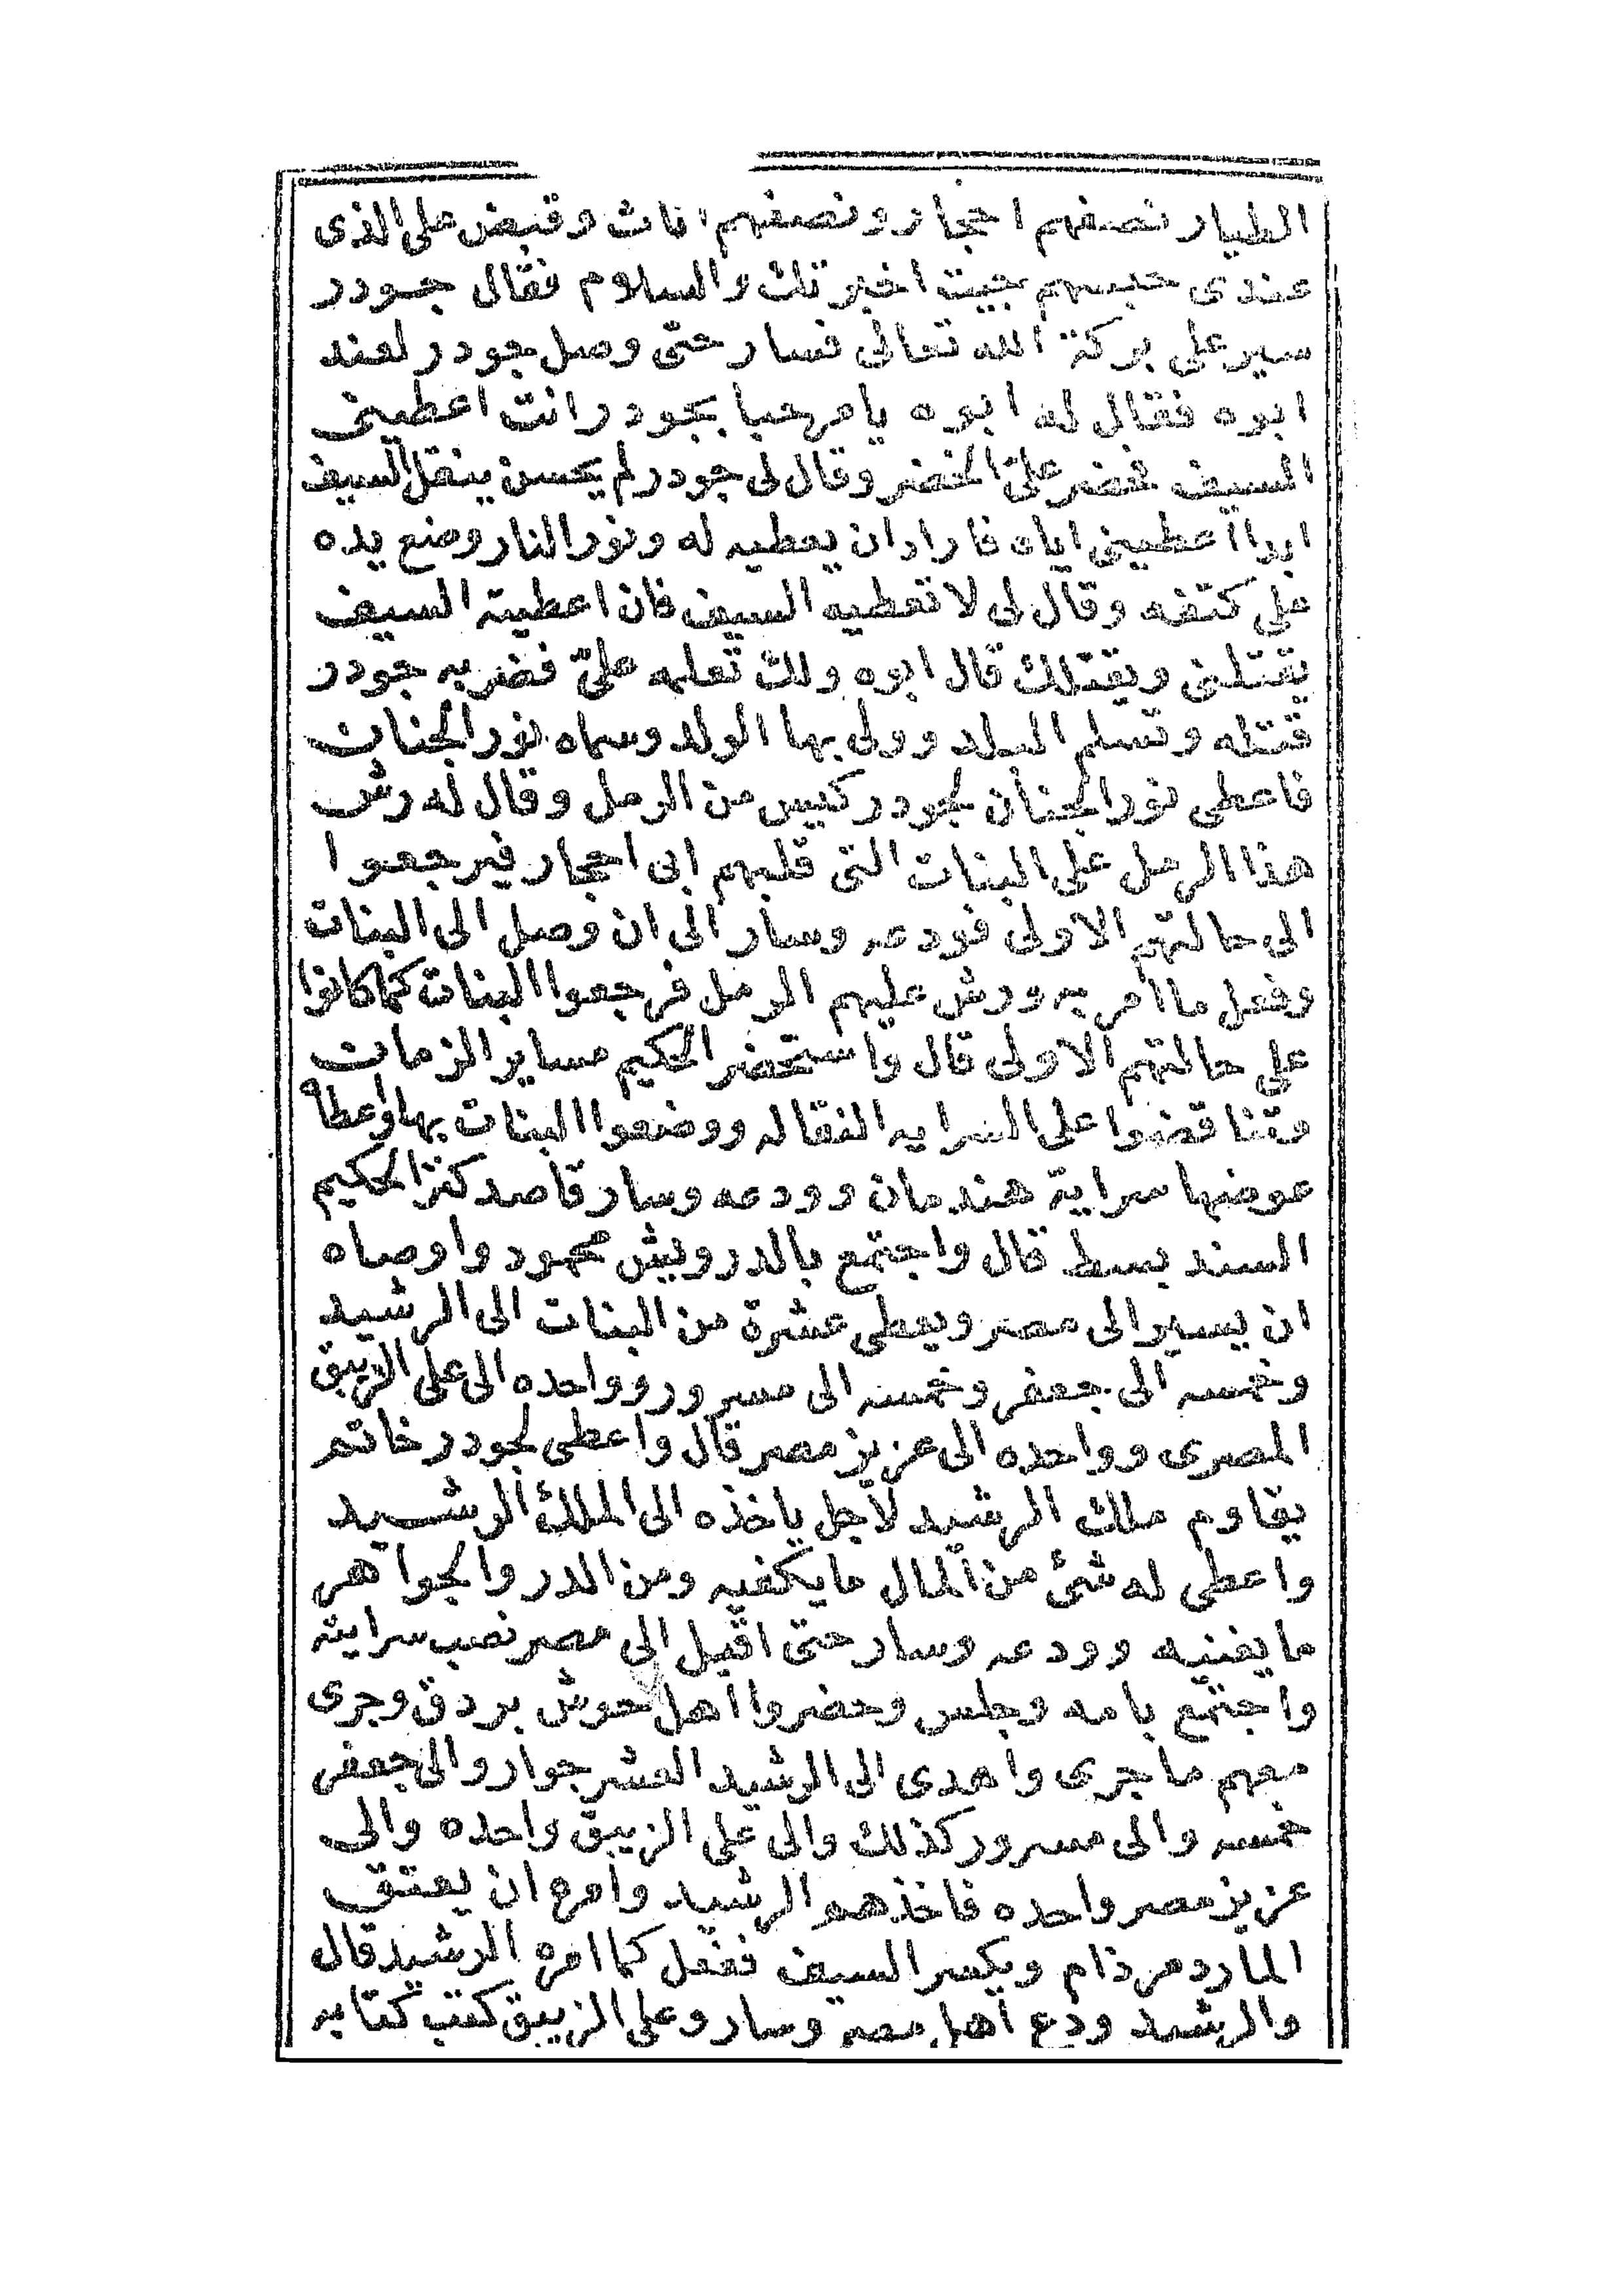 الطيار نصفهم احجار ونصفهم اناث وقبض على الذى
عندى حبسهم جيت اخبرتك والسلام فقال جودر
سير على بركة الله تعالى فسار حتى وصل جودر لعند
ابوه فقال له ابوه يا مرحبا بجودر انت اعطينى
السيف فحضر علىّ الخضر وقال لى جودر لم يحسن ينقل السيف
ابدا اعطينى اياه فاراد ان يعطيه له ونور النار وضع يده
على كتفه وقال لى لا تعطيه السيف فان اعطيته السيف
يقتلنى ويقتلك قال ابوه ولك تعلمه علىّ فضربه جودر
قتله وتسلم البلد وولى بها الولد وسماه نور الجنان
فاعطى نور الجنان لجودر كيس من الرمل وقال له رش
هذا الرمل على البنات التى قلبهم ابى احجار فيرجعوا
الى حالتهم الاولى فودعه وسار الى ان وصل الى البنات
وفعل ما امر به ورش عليهم الرمل فرجعوا البنات كما كانوا
على حالتهم الاولى قال واستحضر الحكيم مساير الزمان
وتناقضوا على السرايه النقاله ووضعوا البنات بها واعطاه
عوضها سراية هندمان وودعه وسار قاصد كنز الحكيم
السند بسط قال واجتمع بالدرويش محمود واوصاه
ان يسير الى مصر ويعطى عشرة من البنات الى الرشيد
وخمسه الى جعفر وخمسه الى مسرور وواحده الى على الزيبق
المصرى وواحده الى عزيز مصر قال واعطى لجودر خاتم
يقاوم ملك الرشيد لاجل ياخذه الى الملك الرشيد
واعطى له شئ من المال ما يكفيه ومن الدر والجواهر
ما يغنيه وودعه وسار حتى اقبل الى مصر نصب سرايته
واجتمع بامه وجلس وحضروا اهل حوش بردق وجرى
معهم ما جرى واهدى الى الرشيد العشر جوار والى جعفر
خمسه والى مسرور كذلك والى على الزيبق واحده والى
عزيز مصر واحده فاخذهم الرشيد وامره ان يعتق
المارد مرذام ويكسر السيف ففعل كما امره الرشيد قال
والرشيد ودع اهل مصر وسار وعلى الزيبق كتب كتابه